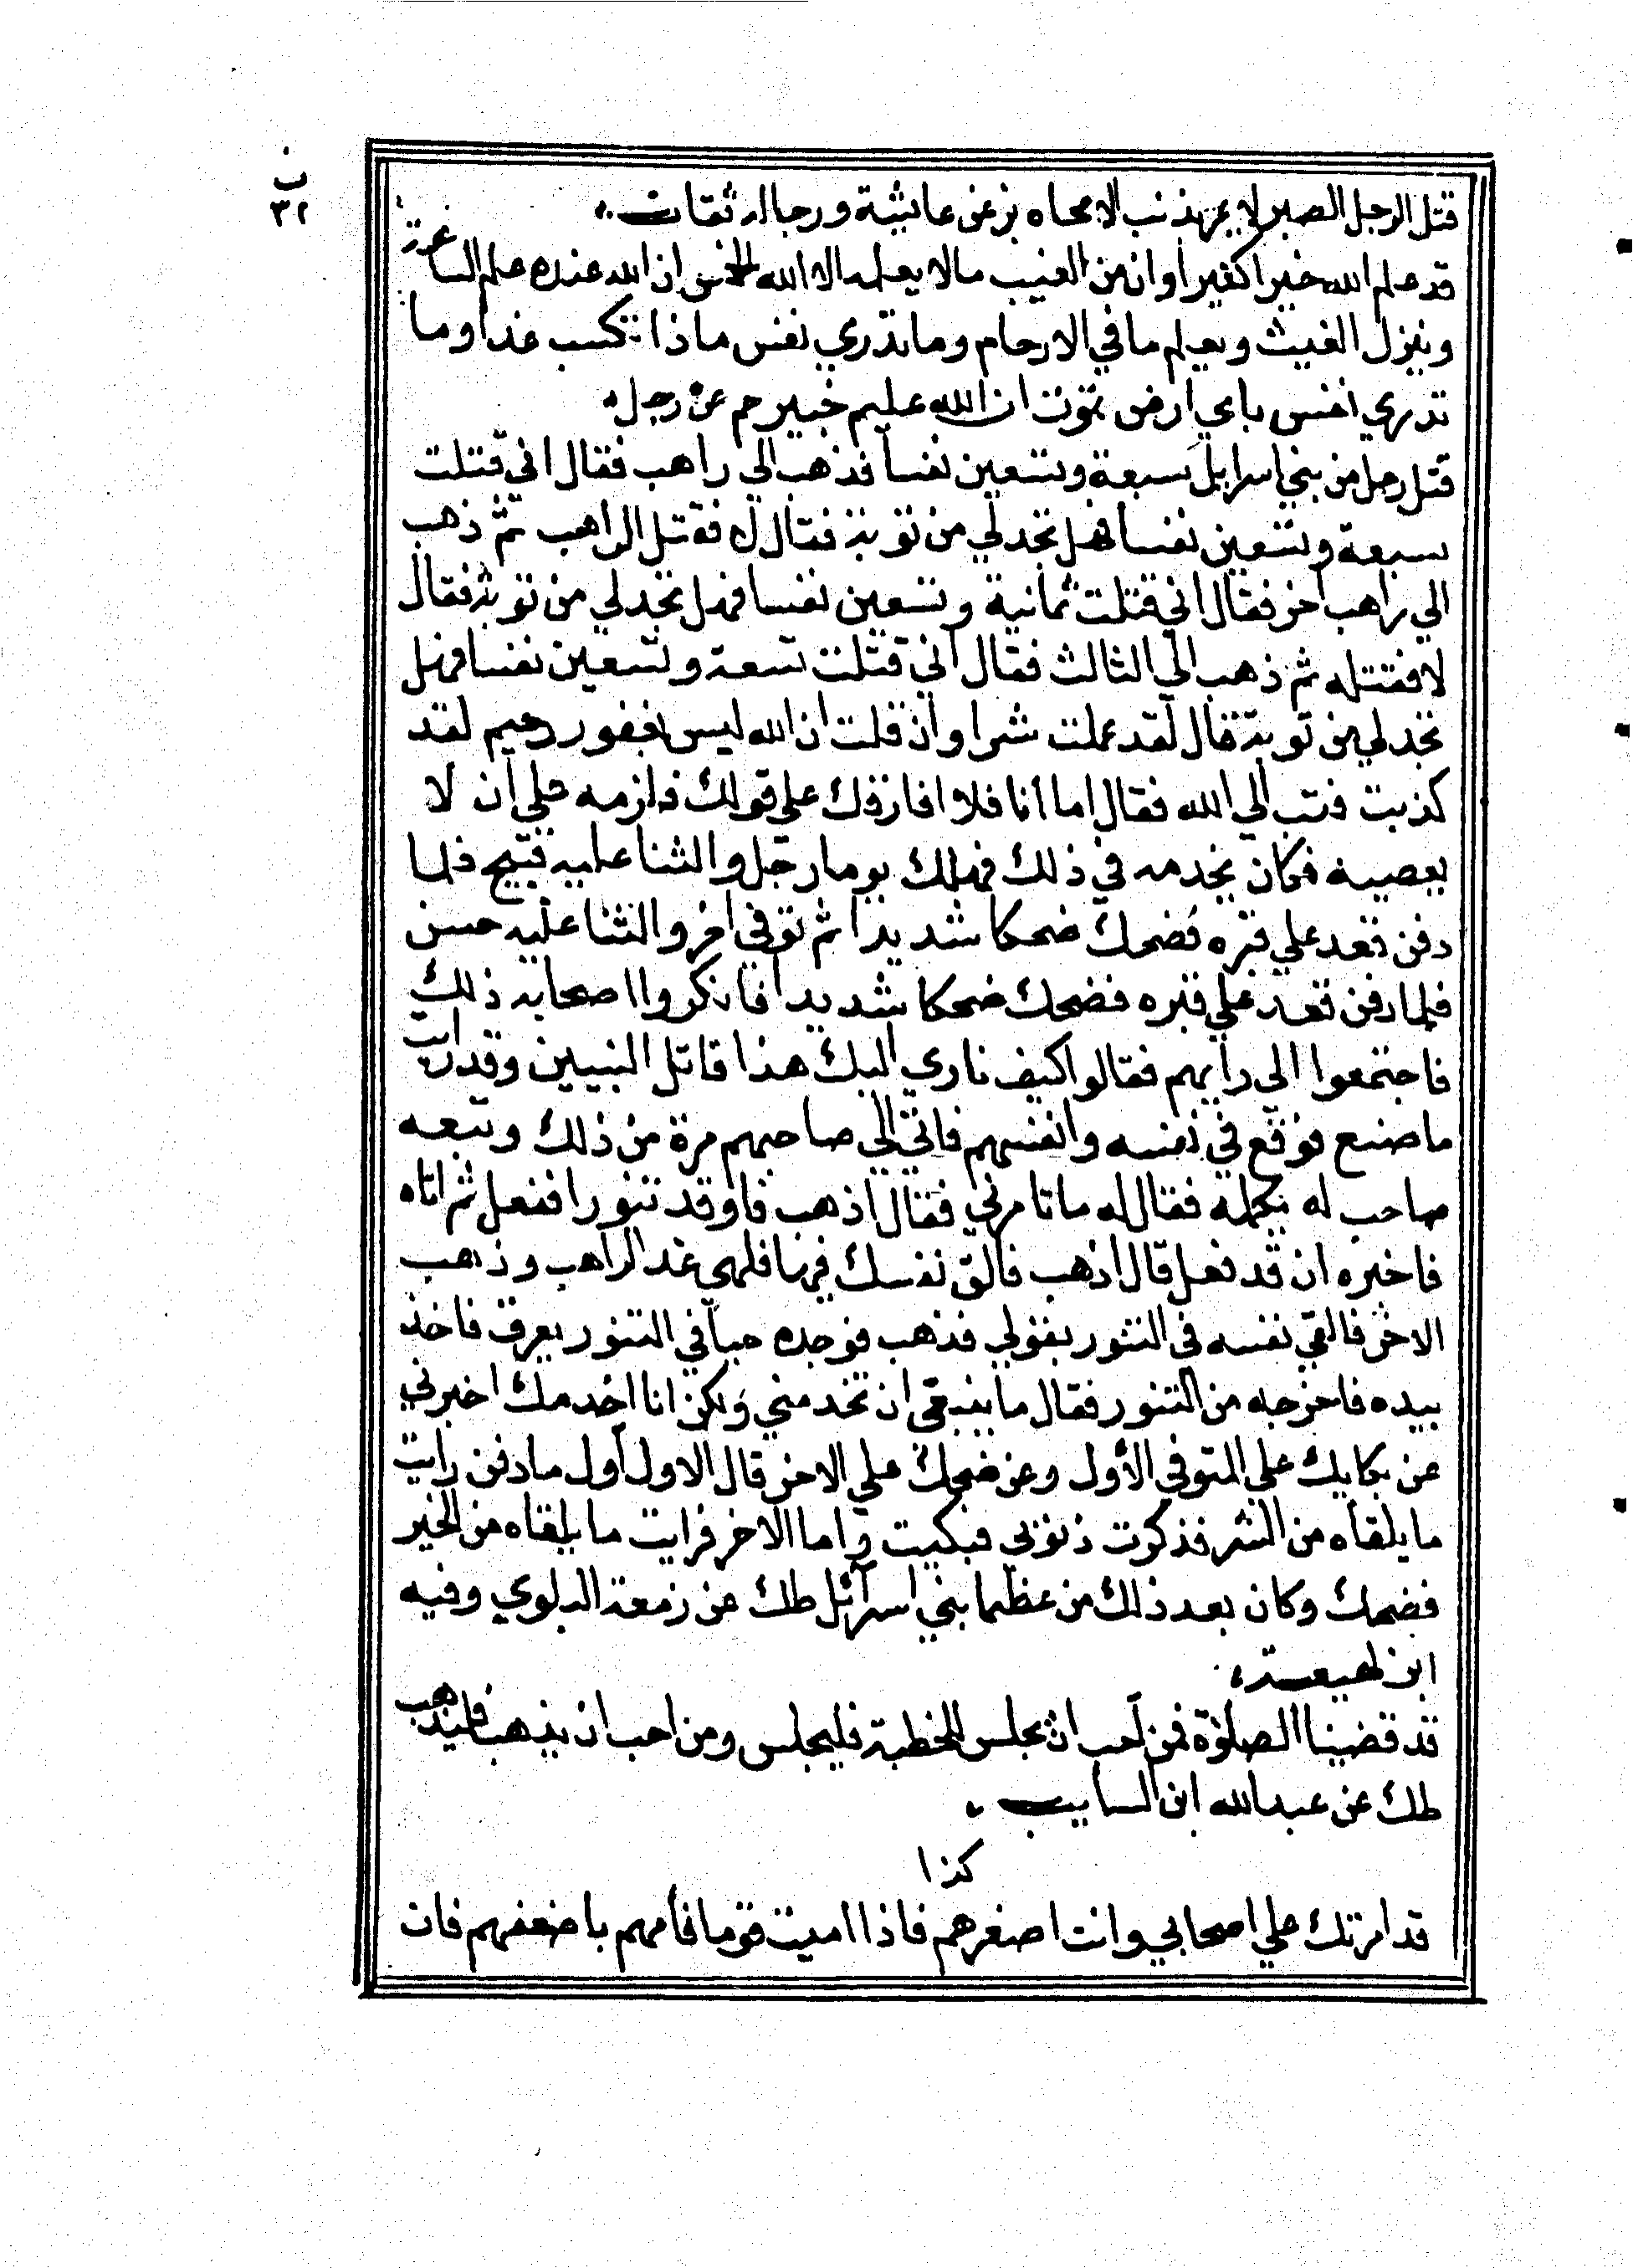 ب
٣٢
قتل الرجل الصبر لا يمر بذنب الا محاه بز عن عايشة ورجاله ثقات
قد علم الله خيرا كثيرا وان من الغيب مالا يعلمه الا الله الخمس ان الله عنده علم الساعة
وينزل الغيث ويعلم ما في الارحام وما تدري نفس ماذا تكسب غدا وما
تدري نفس باي ارض تموت ان الله عليم خبير حم عن رجل
قتل رجل من بني اسرايل سبعة وتسعين نفسا فذهب الي راهب فقال اني قتلت
سبعة وتسعين نفسا فهل تجد لي من توبة فقال لا فقتل الراهب ثم ذهب
الي راهب اخر فقال اني قتلت ثمانية وتسعين نفسا فهل تجد لي من توبة فقال
لا فقتله ثم ذهب الي الثالث فقال اني قتلت تسعة وتسعين نفسا فهل
تجد لي من توبة قال لقد عملت شرا وان قلت ان الله ليس بغفور رحيم لقد
كذبت فتب الي الله فقال اما انا فلا افارقك علي قولك فلزمه علي ان لا
يعصيه فكان يخدمه في ذلك فهلك يوما رجل والثنا عليه قبيح فلما
دفن قعد علي قبره فضحك ضحكا شديدا ثم توفي اخر والثنا عليه حسن
فلما دفن قعد علي قبره فضحك ضحكا شديدا فانكروا اصحابه ذلك
فاجتمعوا الي رايهم فقالوا كيف تاوي اليك هذا قاتل النبيين وقد رايت
ما صنع فوقع في نفسه وانفسهم فاتي الي صاحبهم مرة من ذلك وتبعه
صاحب له يكلمه فقال له ما تامرني فقال اذهب فاوقد تنورا ففعل ثم اتاه
فاخبره ان قد فعل قال اذهب فالق نفسك فيها فلهي عند الراهب وذهب
الاخر فالقي نفسه في التنور فذهب فوجده حيا في التنور يعرق فاخذ
بيده فاخرجه من التنور فقال ما ينبغي ان تخدمني ولكن انا اخدمك اخبرني
عن بكايك علي المتوفي الأول وعن ضحك علي الاخر قال الاول أول ما دفن رايت
ما يلقاه من الشر فذكرت ذنوبي فبكيت واما الاخر فرايت ما يلقاه من الخير
فضحك وكان بعد ذلك من عظما بني اسرآئل طك عن زمعة البلوي وفيه
ابن لهيعة
قد قضينا الصلوة فمن احب ان يجلس للخطبة فليجلس ومن احب ان يذهب فليذهب
طك عن عبد الله ابن السايب
كذا
قد امرتك علي اصحابي وانت اصغرهم فاذا اميت قوما فأمهم باضعفهم فان